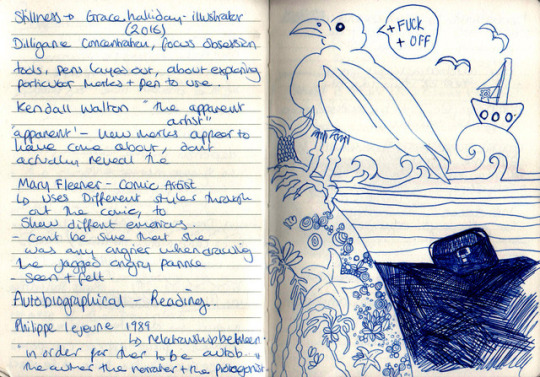 Stillness → Grace halliday - illustrator
(2016)
Dilligance Concentration, focus obsession
tools, pens layed out, about exploring
particular marks + pen to use.
Kendall Walton "the apparent
artist"
'apparent' - how marks appear to
have come about, dont
actually reveal the
Mary Fleener - Comic Artist
↳ Uses Different styles through
out the comic, to
show diffent emotions.
- cant be sure that she
was any angrier when drawing
the jagged angry
- seen + felt.
Autobiographical - Reading.
Philippe Lejeune 1989
↳ relationship between
"in order for ther to be autob
the auther the narrater + the protagonist
+ FUCK
+ OFF